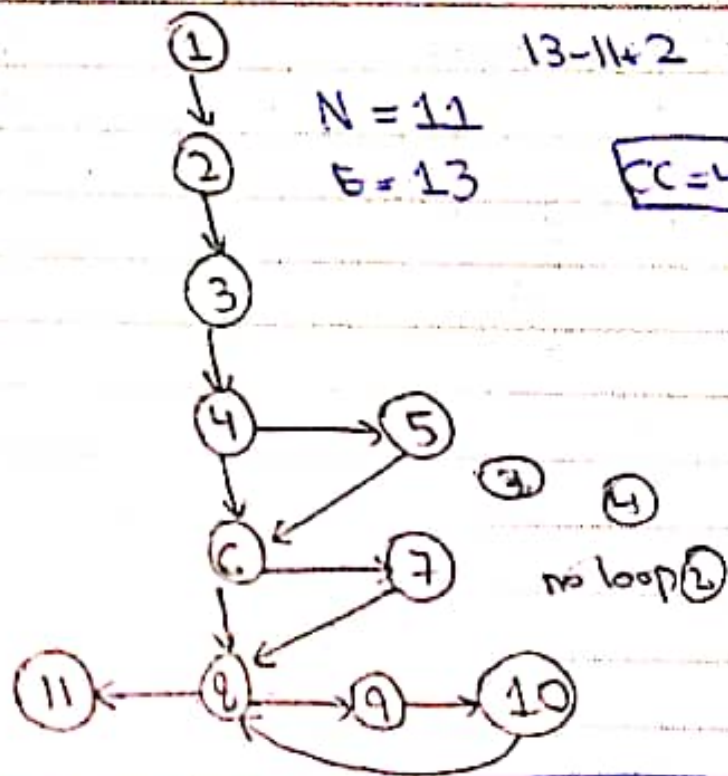 1
13-11+2
N = 11
2
E = 13
CC=4
3
4
5
3
4
6
7
no loop 2
11
8
9
10